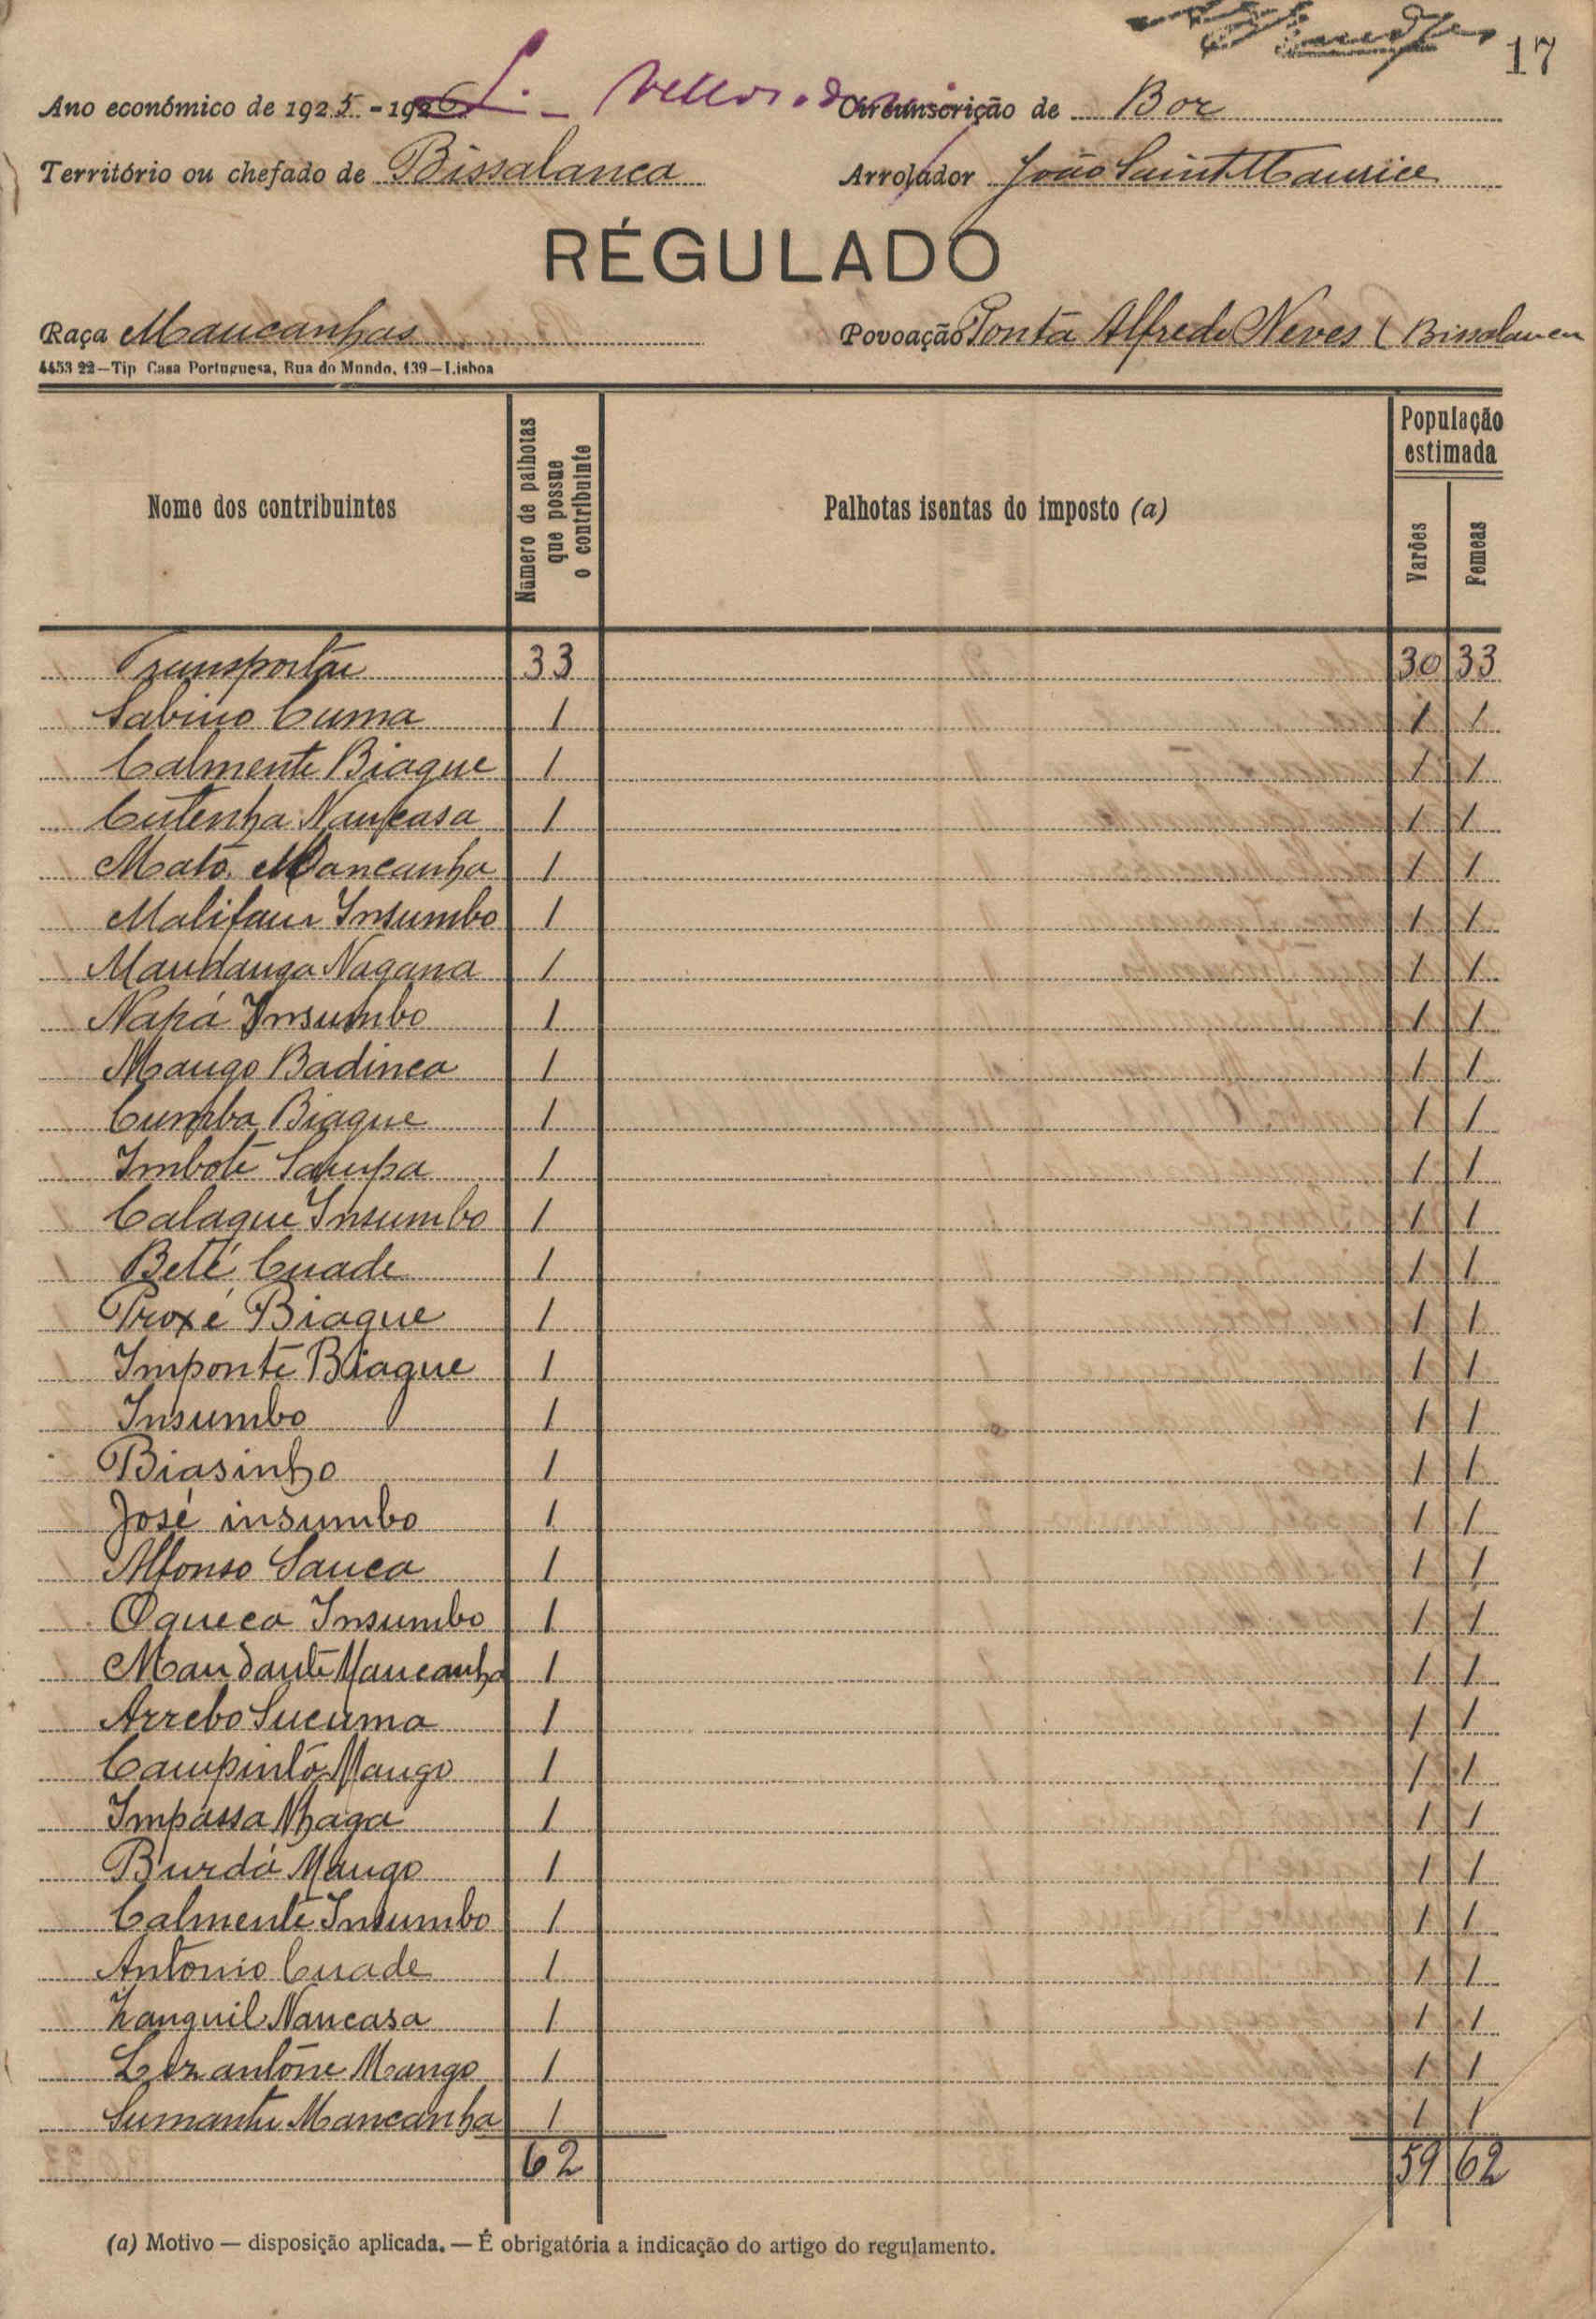 17
Ano económico de 1925-1926 Circunscrição de Bor
Território ou chefado de Bissalanca Arrolador João Saint Maurice
RÉGULADO
Raça Mancanhas Povoação Ponta Alfredo Neves (Bissalanca
4453 22—Tip Casa Portuguesa, Rua do Mundo, 139—Lisboa
Nome dos contribuintes
Número de palhotas que possue o contribuinte
Palhotas isentas do imposto (a)
População estimada
Varões
Femeas
Transportar 33 30 33
Sabino Cuma 1 1 1
Calmente Biague 1 1 1
Cutenha Nancasa 1 1 1
Mató Mancanha 1 1 1
Malifam Insumbo 1 1 1
Mandanga Nagana 1 1 1
Napá Insumbo 1 1 1
Mango Badinca 1 1 1
Cumba Biague 1 1 1
Imboté Saupa 1 1 1
Calaque Insumbo 1 1 1
Beté Cuade 1 1 1
Proxé Biague 1 1 1
Imponte Biague 1 1 1
Insumbo 1 1 1
Biasinho 1 1 1
José insumbo 1 1 1
Alfonso Sanca 1 1 1
Oqueca Insumbo 1 1 1
Mandante Mancanha 1 1 1
Arrebo Sucuma 1 1 1
Campinto Mango 1 1 1
Impassa Nhaga 1 1 1
Burdá Mango 1 1 1
Calmente Insumbo 1 1 1
Antonio Cuade 1 1 1
Zanguil Nancasa 1 1 1
antóne Mango 1 1 1
Sumante Mancanha 1 1 1
62 59 62
(a) Motivo — disposição aplicada. — É obrigatória a indicação do artigo do regulamento.